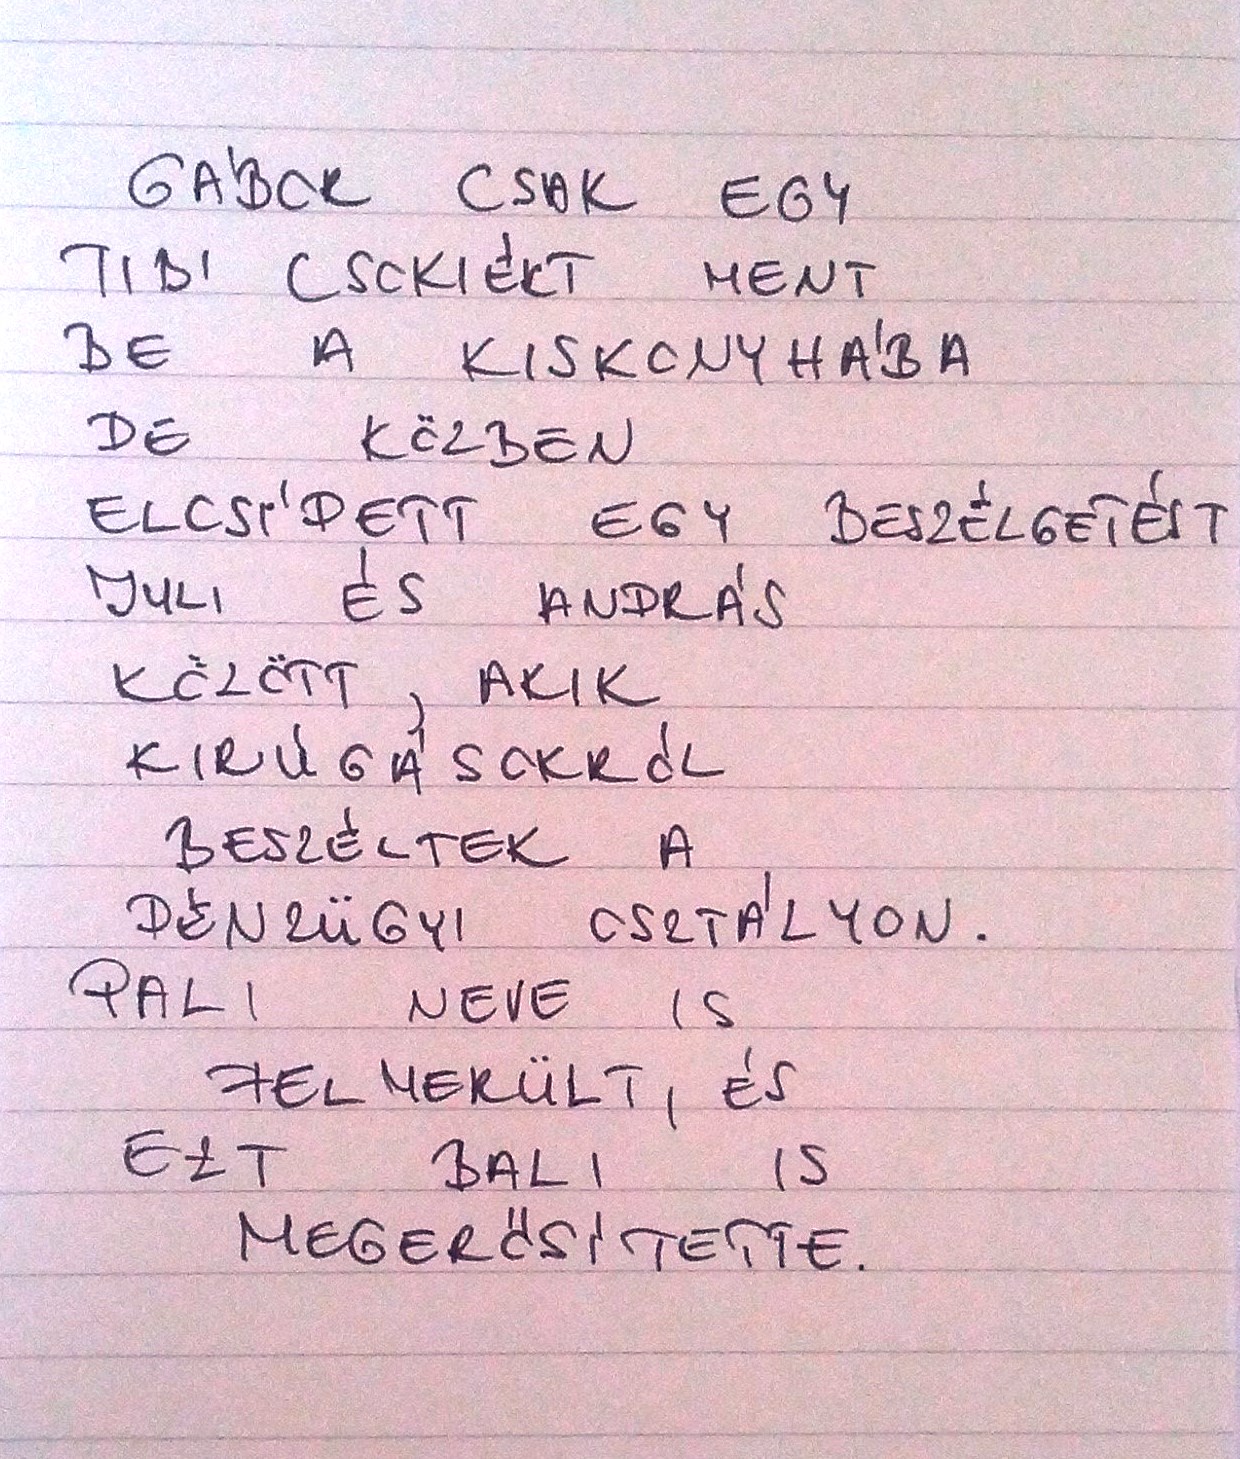 GÁBOR CSAK EGY
TIBI CSOKIÉRT MENT
BE A KISKONYHÁBA
DE KÖZBEN
ELCSÍPETT EGY BESZÉLGETÉST
JULI ÉS ANDRÁS
KÖZÖTT, AKIK
KIRÚGÁSOKRÓL
BESZÉLTEK A
PÉNZÜGYI OSZTÁLYON.
PALI NEVE IS
FELMERÜLT, ÉS
EZT BALI IS
MEGERŐSÍTETTE.